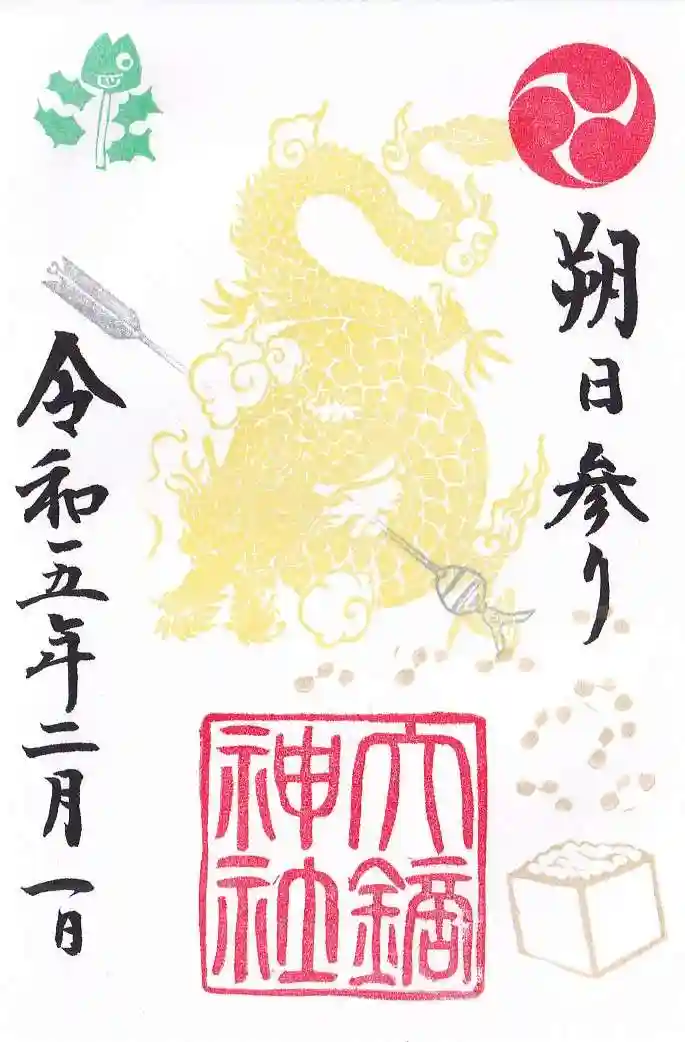 朔日参り
大鏑
神社
令和五年二月一日